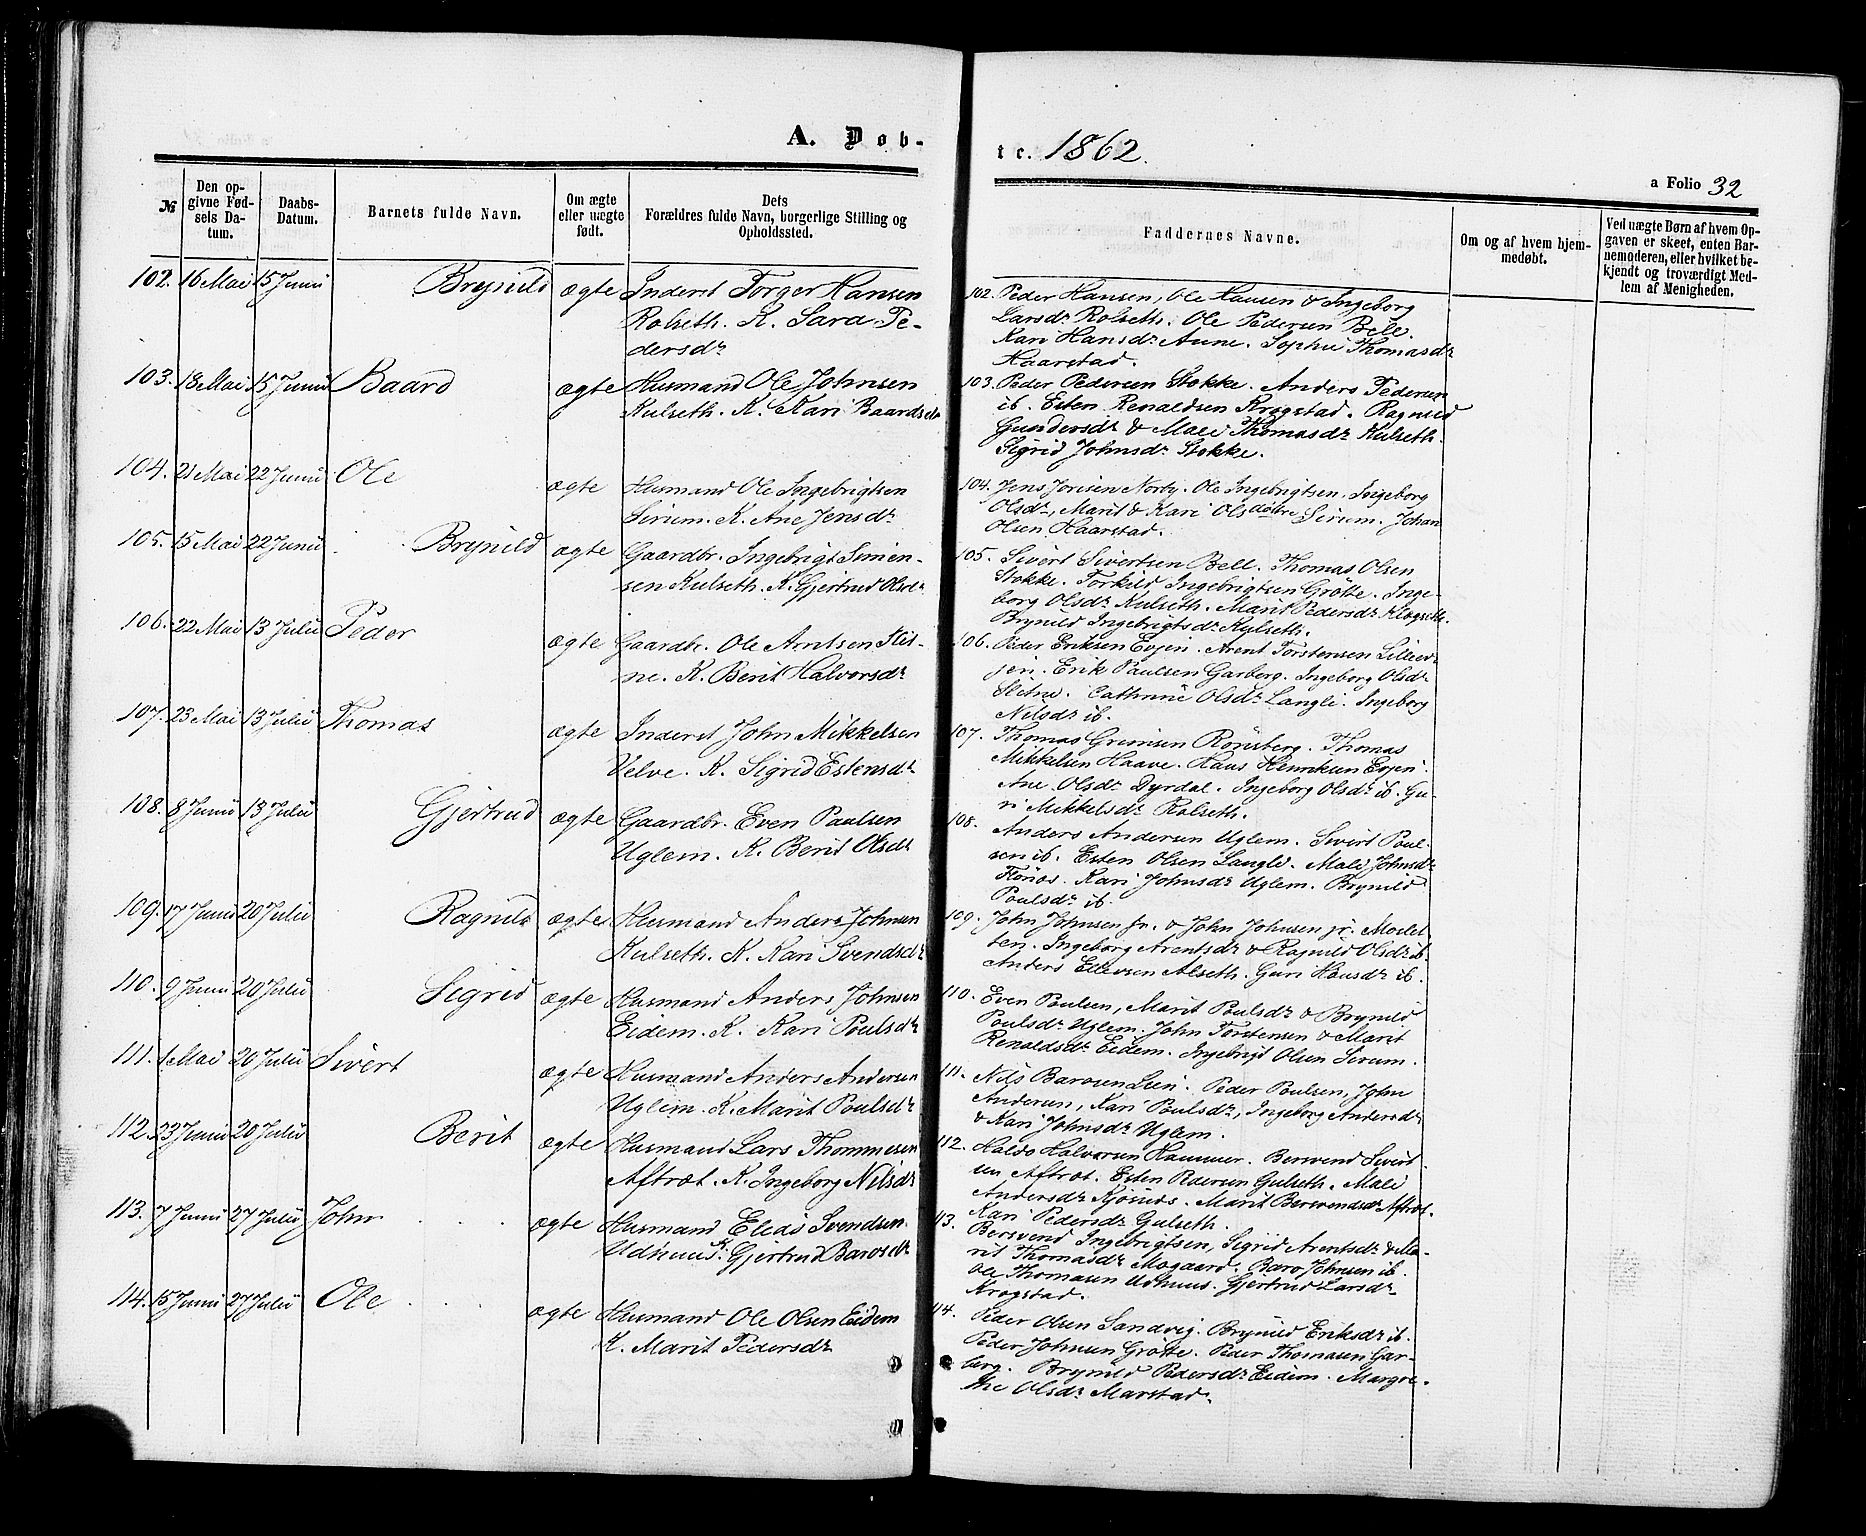 A. Døb-
te. 1862.
a Folio 32
№
Den op-
givne Fød-
sels Da-
tum.
Daabs-
Datum.
Barnets fulde Navn.
Om ægte
eller uægte
født.
Dets
Forældres fulde Navn, borgerlige Stilling og
Opholdssted.
Faddernes Navne.
Om og af hvem hjem-
medøbt.
Ved uægte Børn af hvem Op-
gaven er skeet, enten Bar-
nemoderen, eller hvilket be-
kjendt og troværdigt Med-
lem af Menigheden.
102. 16 Mai 15 Junii Brynild ægte Inderst Torger Hansen
Rolseth. K. Sara Pe-
dersdr
103. 18 Mai 15 Junii Baard ægte Husmand Ole Johnsen
Kulseth. K. Kari Baardsdr
104. 21 Mai 22 Junii Ole ægte Husmand Ole Ingebrigtsen
Sirum. K. Ane Jensdr
105. 15 Mai 22 Junii Brynild ægte Gaardbr. Ingebrigt Simen-
sen Kulseth. K. Gjertrud Olsdr
106. 22 Mai 13 Julii Peder ægte Gaardbr. Ole Arntsen Slet-
ne. K. Berit Halvorsdr
107. 23 Mai 13 Julii Thomas ægte Inderst John Mikkelsen
Velve. K. Sigrid Estensdr
108. 8 Junii 13 Julii Gjertrud ægte Gaardbr. Even Paulsen
Uglem. K. Berit Olsdr
109. 17 Junii 20 Julii Ragnild ægte Husmand Anders Johnsen
Kulseth. K. Kari Svendsdr
110. 9 Junii 20 Julii Sigrid ægte Husmand Anders Johnsen
Eidem. K. Kari Poulsdr
111. 1 Mai 20 Julii Sivert ægte Husmand Anders Andersen
Uglem. K. Marit Poulsdr
112. 23 Junii 20 Julii Berit ægte Husmand Lars Thommesen
Aftræt. K. Ingeborg Nilsdr
113. 7 Junii 27 Julii John ægte Husmand Elias Svendsen
Udhuus K. Gjertrud Barosdr
114. 15 Junii 27 Julii Ole ægte Husmand Ole Olsen Eidem
K. Marit Pedersdr
102. Peder Hansen, Ole Hansen & Ingeborg
Larsdr Rolseth. Ole Pedersen Bell.
Kari Hansdr Aune. Sophie Thomasdr
Haarstad.
103. Peder Pedersen Stokke. Anders Pedersen
ib. Esten Renaldsen Krogstad. Ragnild
Gundersdr & Mali Thomasdr Kulseth.
Sigrid Johnsdr Stokke.
104. Jens Jonsen Norby. Ole Ingebrigtsen, Ingeborg
Olsdr, Marit & Kari Olsdøtre Sirum. Johan
Olsen Haarstad.
105. Sivert Sivertsen Bell. Thomas Olsen
Stokke. Torkild Ingebrigtsen Grøtte. Inge-
borg Olsdr Kulseth. Marit Pedersdr
Brynild Ingebrigtsdr Kulseth.
106. Peder Eriksen Evjen. Arent Torstensen Lilleev-
jen. Erik Paulsen Garberg. Ingeborg Olsdr
Sletne. Cathrine Olsdr Langli. Ingeborg
Nilsdr ib.
107. Thomas Grimsen Rønsberg. Thomas
Mikkelsen Haave. Hans Henriksen Evjen.
Ane Olsdr Dyrdal. Ingeborg Olsdr ib. Gu-
ri Mikkelsdr Rolseth.
108. Anders Andersen Uglem. Sivert Poul-
sen ib. Esten Olsen Langli. Mali Johnsdr
Flønes. Kari Johnsdr Uglem. Brynild
Poulsdr ib.
109. John Johnsen sr. & John Johnsen jr. Moslet-
ten. Ingeborg Arentsdr & Ragnild Olsdr ib.
Anders Ellevsen Alseth. Guri Hansdr ib.
110. Even Poulsen, Marit Poulsdr & Brynild
Poulsdr Uglem. John Torstensen & Marit
Renaldsdr Eidem. Ingebrigt Olsen Sirum.
111. Nils Barosen Lien. Peder Poulsen, John
Andersen, Kari Poulsdr, Ingeborg Andersdr
& Kari Johnsdr Uglem.
112. Haldo Halvorsen Hammer. Bersvend Sivert-
sen Aftræt. Esten Pedersen Gulseth. Mali
Andersdr Kjøsnes. Marit Bersvendsdr Aftræt.
Kari Pedersdr Gulseth.
113. Bersvend Ingebrigtsen, Sigrid Arentsdr & Ma-
rit Thomasdr Mogaard. Baro Johnsen ib.
Ole Thomasen Udhuus. Gjertrud Larsdr
Krogstad.
114. Peder Olsen Sandvig. Brynild Eriksdr ib.
Peder Johnsen Grøtte. Peder Thomasen Gar-
berg. Brynild Pedersdr Eidem. Margre-
the Olsdr Marstad.